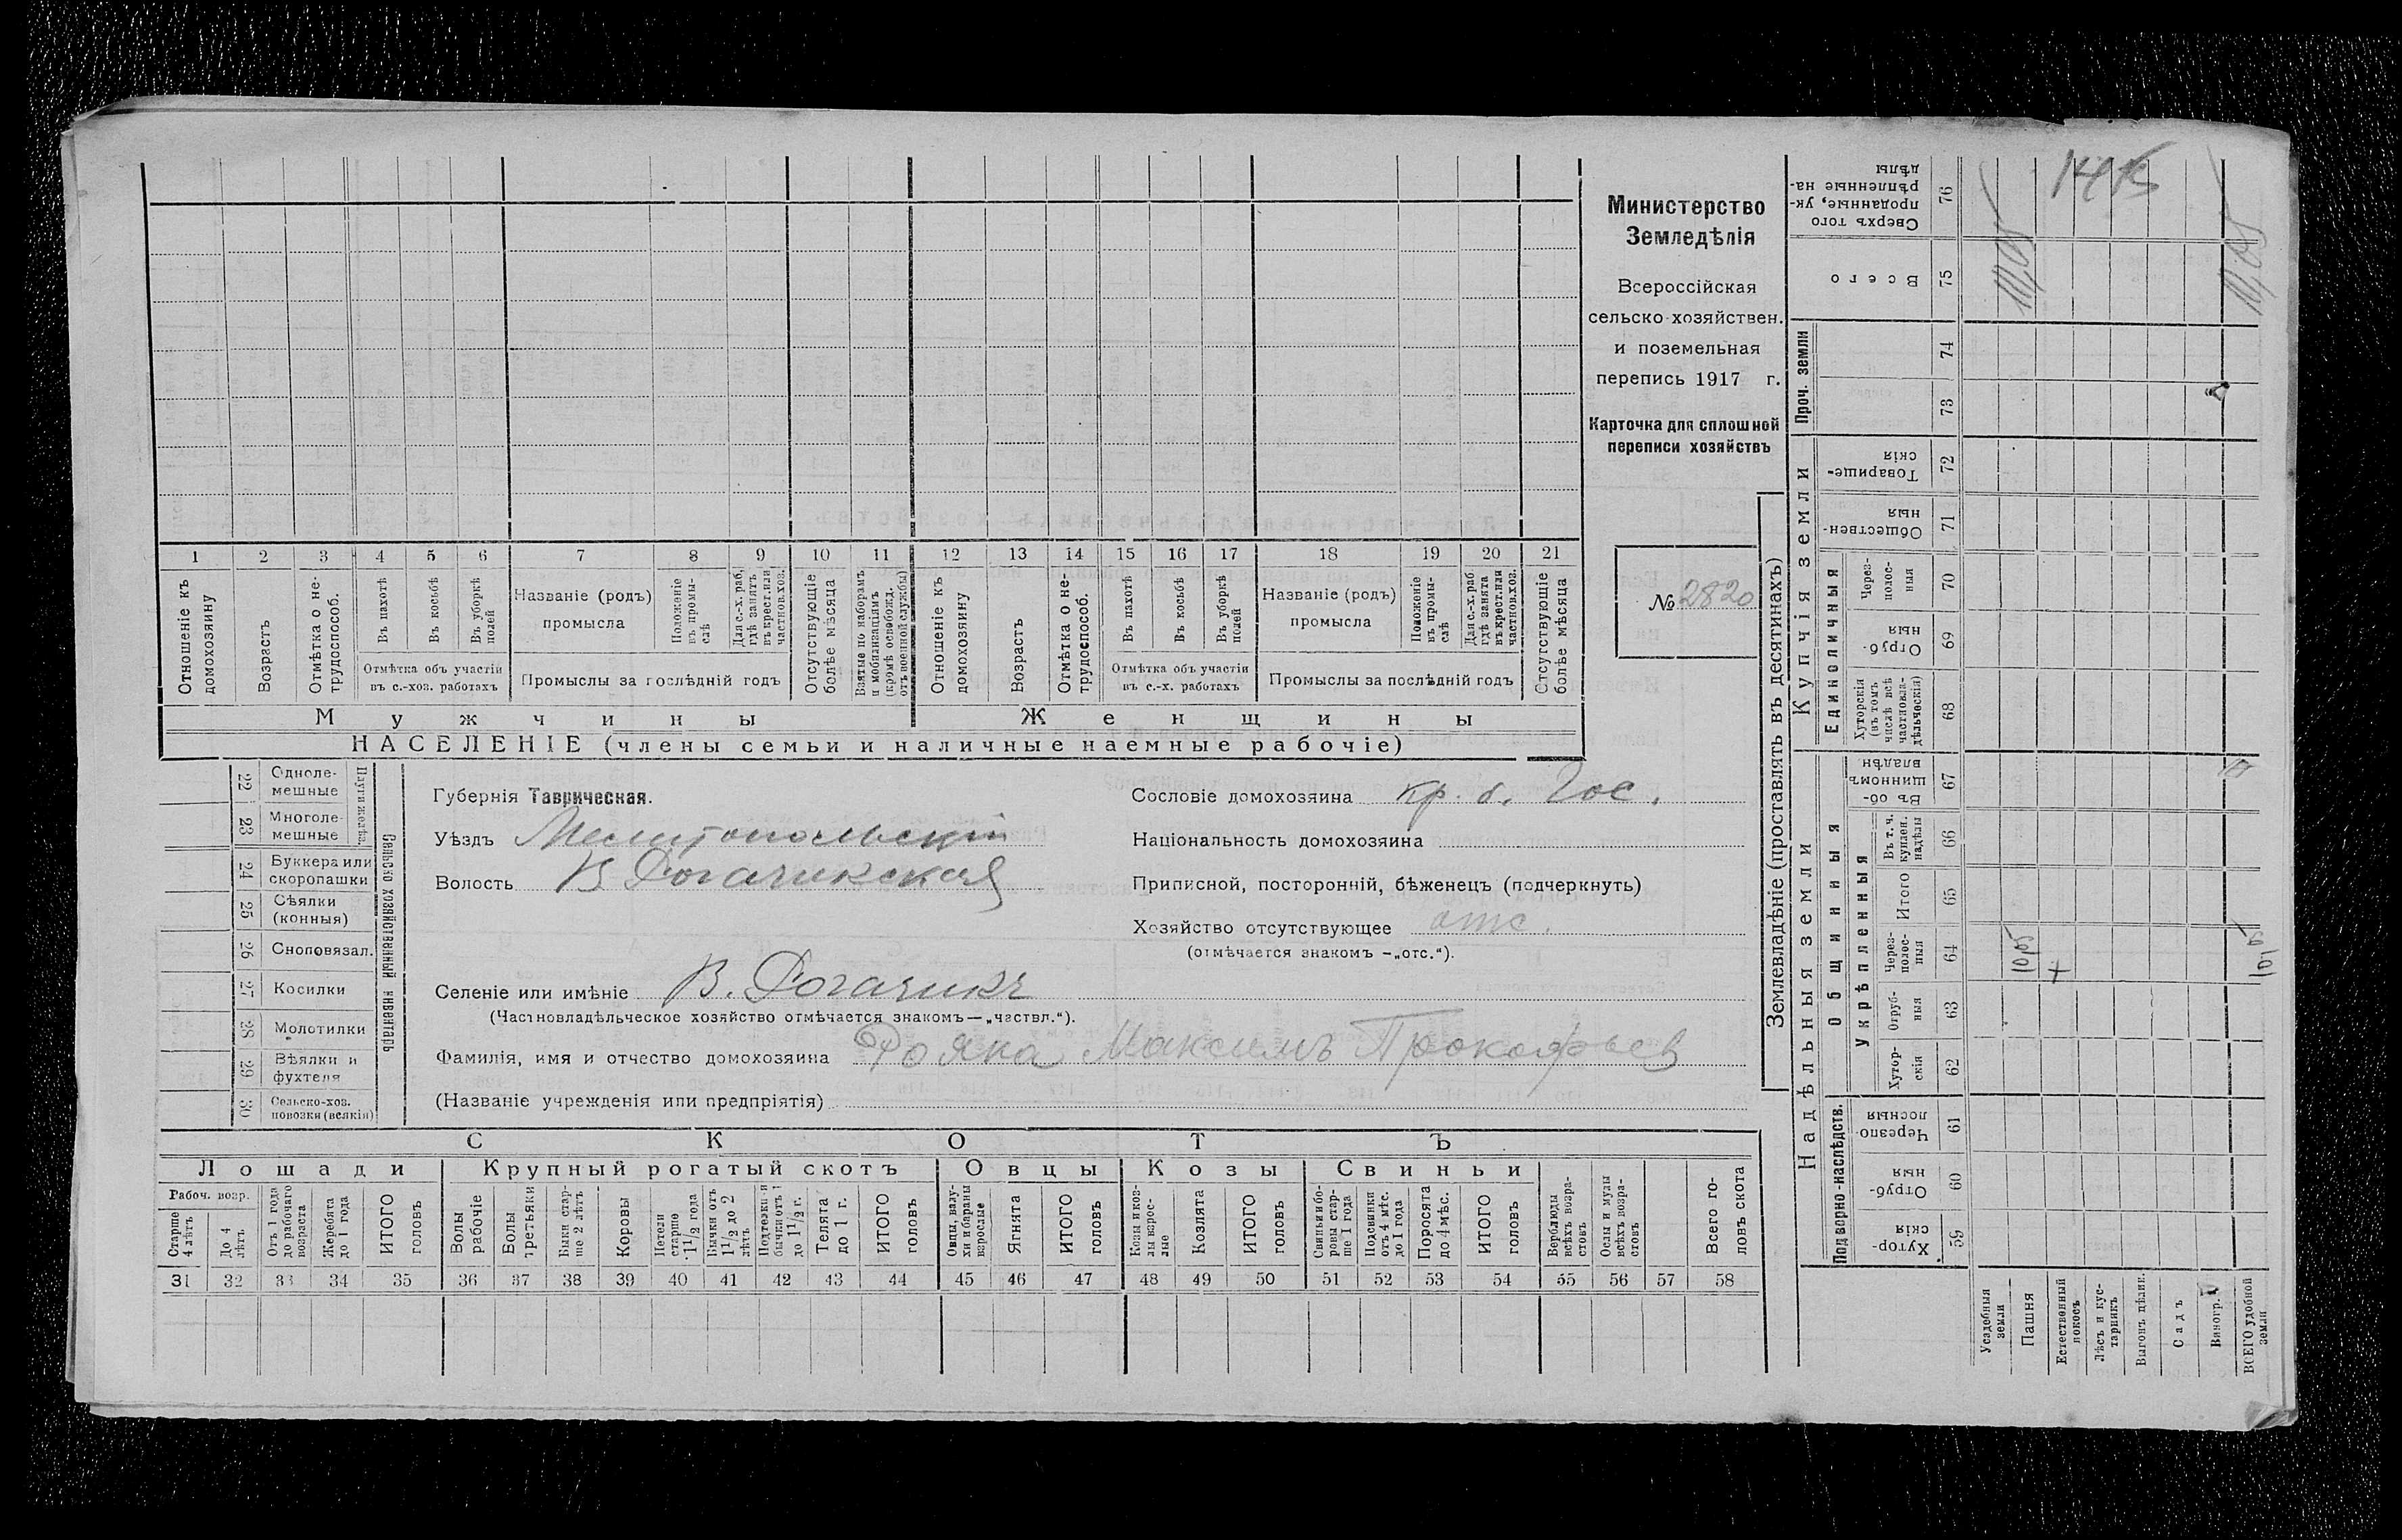 Министерство
Земледѣлія
Всероссійская
сельско-хозяйствен.
и поземельная
перепись 1917 г.
Карточка для сплошной
переписи хозяйствъ
№ 2820
1 2 3 4 5 6 7 8 9 10 11 12 13 14 15 16 17 18 19 20 21
Отношеніе къ домохозяину
Возрастъ
Отмѣтка о не-трудоспособ.
Въ пахотѣ
Въ косьбѣ
Въ уборкѣ полей
Отмѣтка объ участіи
въ с.-хоз. работахъ
Названіе (родъ)
промысла
Положеніе въ промы-слѣ
Для с.-х. раб. гдѣ занятъ въ крест. или частнов. хоз.
Промыслы за послѣдній годъ
Отсутствующіе болѣе мѣсяца
Взятые по наборамъ и мобилизаціямъ (кромѣ освобожд. отъ военной службы)
Отношеніе къ домохозяину
Возрастъ
Отмѣтка о не-трудоспособ.
Въ пахотѣ
Въ косьбѣ
Въ уборкѣ полей
Отмѣтка объ участіи
въ с.-х. работахъ
Названіе (родъ)
промысла
Положеніе въ промы-слѣ
Для с.-х. раб. гдѣ занята въ крест. или частнов. хоз.
Промыслы за послѣдній годъ
Отсутствующіе болѣе мѣсяца
Мужчины
Женщины
НАСЕЛЕНІЕ (члены семьи и наличные наемные рабочіе)
22 Одноле-мешные
23 Многоле-мешные
24 Буккера или скоропашки
25 Сѣялки (конныя)
26 Сноповязал.
27 Косилки
28 Молотилки
29 Вѣялки и фухтеля
30 Сельско-хоз. повозки (всякія)
Сельско хозяйственный инвентарь
Губернія Таврическая.
Уѣздъ Мелитопольскій
Волость В Рогачикская
Селеніе или имѣніе В. Рогачикъ
(Частновладѣльческое хозяйство отмѣчается знакомъ—„частвл.“).
Фамилія, имя и отчество домохозяина Рояка Максимъ Прокофьев
(Названіе учрежденія или предпріятія)
Сословіе домохозяина кр. б. Гос.
Національность домохозяина
Приписной, посторонній, бѣженецъ (подчеркнуть)
Хозяйство отсутствующее отс.
(отмѣчается знакомъ —„отс.“).
СКОТЪ
Лошади
Крупный рогатый скотъ
Овцы
Козы
Свиньи
Рабоч. возр.
Старше 4 лѣтъ
До 4 лѣтъ
Отъ 1 года до рабочаго возраста
Жеребята до 1 года
ИТОГО головъ
Волы рабочіе
Волы третьяки
Быки стар-ше 2 лѣтъ
Коровы
Нетели старше 1 1/2 года
Бычки отъ 1 1/2 до 2 лѣтъ
Подтелки и бычки отъ 1 до 1 1/2 г.
Телята до 1 г.
ИТОГО головъ
Овцы, валу-хи и бараны взрослые
Ягнята
ИТОГО головъ
Козы и коз-лы взрос-лые
Козлята
ИТОГО головъ
Свиньи и бо-ровы стар-ше 1 года
Подсвинки отъ 4 мѣс. до 1 года
Поросята до 4 мѣс.
ИТОГО головъ
Верблюды всѣхъ возра-стовъ
Ослы и мулы всѣхъ возра-стовъ
Всего го-ловъ скота
31 32 33 34 35 36 37 38 39 40 41 42 43 44 45 46 47 48 49 50 51 52 53 54 55 56 57 58
Землевладѣніе (проставлять въ десятинахъ)
Надѣльныя земли
Купчія земли
Проч. земли
Подворно-наслѣдств.
Общинныя
Укрѣпленныя
Единоличныя
Сверхъ того проданные, ук-рѣпленные на-дѣлы 76
Всего 75
74
73
Товарище-скія 72
Обществен-ныя 71
Через-полос-ныя 70
Отруб-ныя 69
Хуторскія (въ томъ числѣ всѣ частновла-дѣльческія) 68
Въ об-щинномъ владѣн 67
Въ т. ч. куплен. надѣлы 66
Итого 65
Через-полос-ныя 64
Отруб-ныя 63
Хутор-скія 62
Черезпо-лосныя 61
Отруб-ныя 60
Хутор-скія 59
Усадебныя земли
Пашня
Естественный покосъ
Лѣсъ и кус-тарникъ
Выгонъ цѣлик.
Садъ
Виногр.
ВСЕГО удобной земли